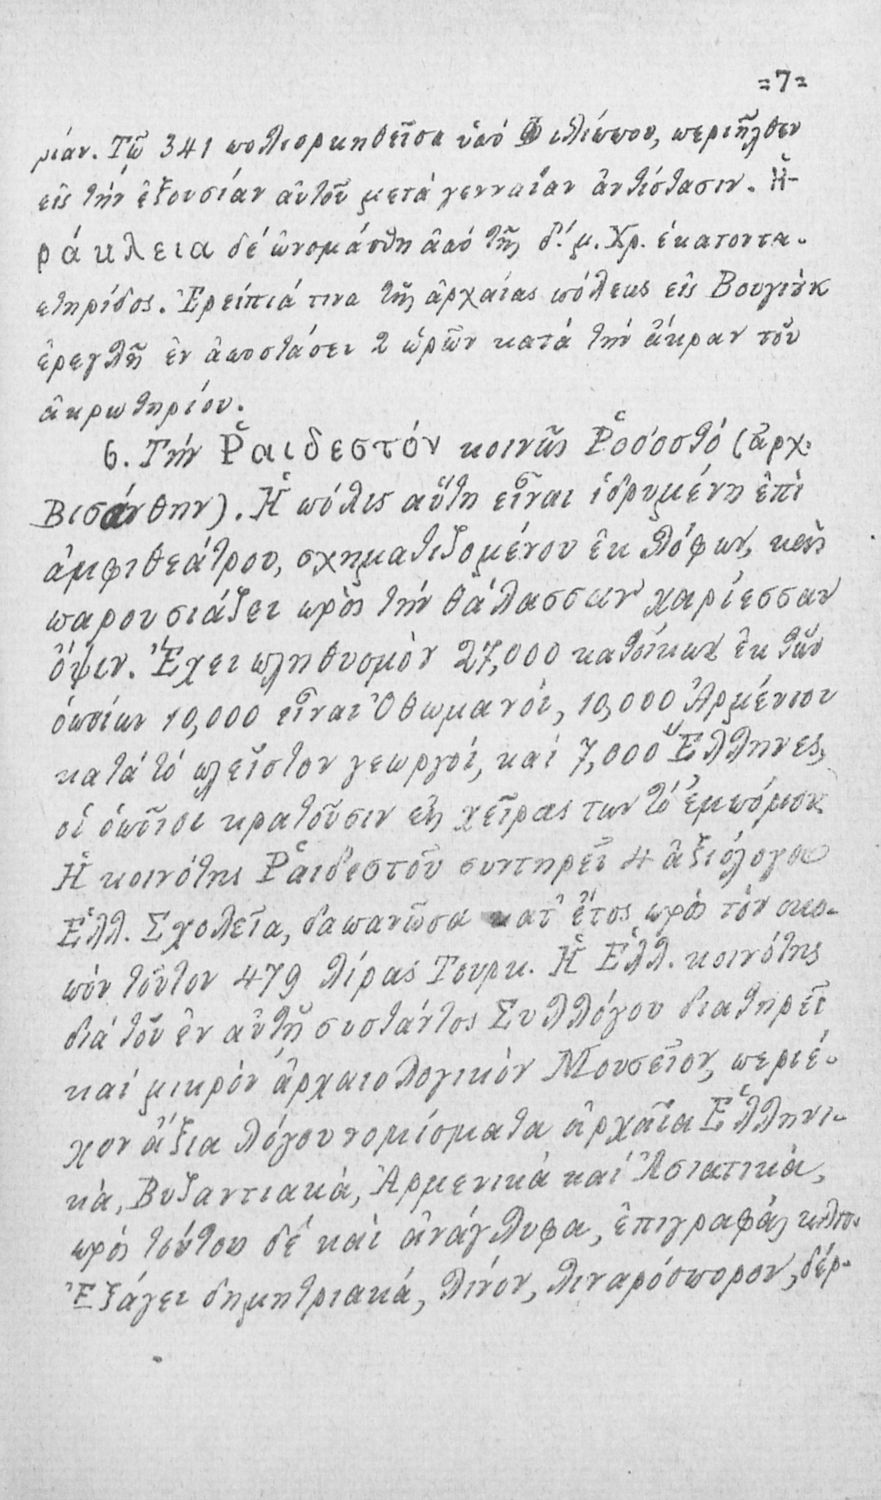 =7=
μίαν. Τῷ 341 πολιορκηθεῖσα ὑπό Φιλίππου, περιῆλθεν
εἰς τήν ἐξουσίαν αὐτοῦ μετά γενναίαν ἀντίστασιν. Ἡ-
ράκλεια δέ ὠνομάσθη ἀπό τῆς δ! μ. Χρ. ἑκατοντα-
ετηρίδος. Ἐρείπιά τινα τῆς ἀρχαίας πόλεως εἰς Βουγιοὺκ
ἐρεγλῆ ἐν ἀποστάσει 2 ὡρῶν κατά τήν ἄκραν τοῦ
ἀκρωτηρίου.
6. Τήν Ῥαιδεστόν κοινῶς Ῥοδοστό (ἀρχ.
Βισάνθην). Ἡ πόλις αὕτη εἶναι ἱδρυμένη ἐπὶ
ἀμφιθεάτρου, σχηματιζομένου ἐκ λόφων, καὶ
παρουσιάζει πρὸς τήν θάλασσαν χαρίεσσαν
ὄψιν. Ἔχει πληθυσμὸν 27,000 κατοίκων ἐκ τῶν
ὁποίων 10,000 εἶναι Ὀθωμανοί, 10,000 Ἀρμένιοι
κατά τό πλεῖστον γεωργοί, καί 7,000 Ἕλληνες,
οἱ ὁποῖοι κρατοῦσιν εἰς χεῖρας των τό ἐμπόριον.
Ἡ κοινότης Ῥαιδεστοῦ συντηρεῖ 4 ἀξιόλογα
Ἑλλ. Σχολεῖα, δαπανῶσα κατ' ἔτος πρός τόν σκο-
πόν τοῦτον 479 λίρας Τουρκ. Ἡ Ἑλλ. κοινότης
διά τοῦ ἐν αὐτῇ συστάντος Συλλόγου διατηρεῖ
καί μικρὸν ἀρχαιολογικὸν Μουσεῖον, περιέ-
χον ἄξια λόγου νομίσματα ἀρχαῖα Ἑλληνι-
κὰ, Βυζαντιακά, Ἀρμενικά καί Ἀσιατικὰ,
πρός τούτου δέ καὶ ἀνάγλυφα, ἐπιγραφάς κλπ.
Ἐξάγει δημητριακά, λίνον, λιναρόσπορον, δέρ-